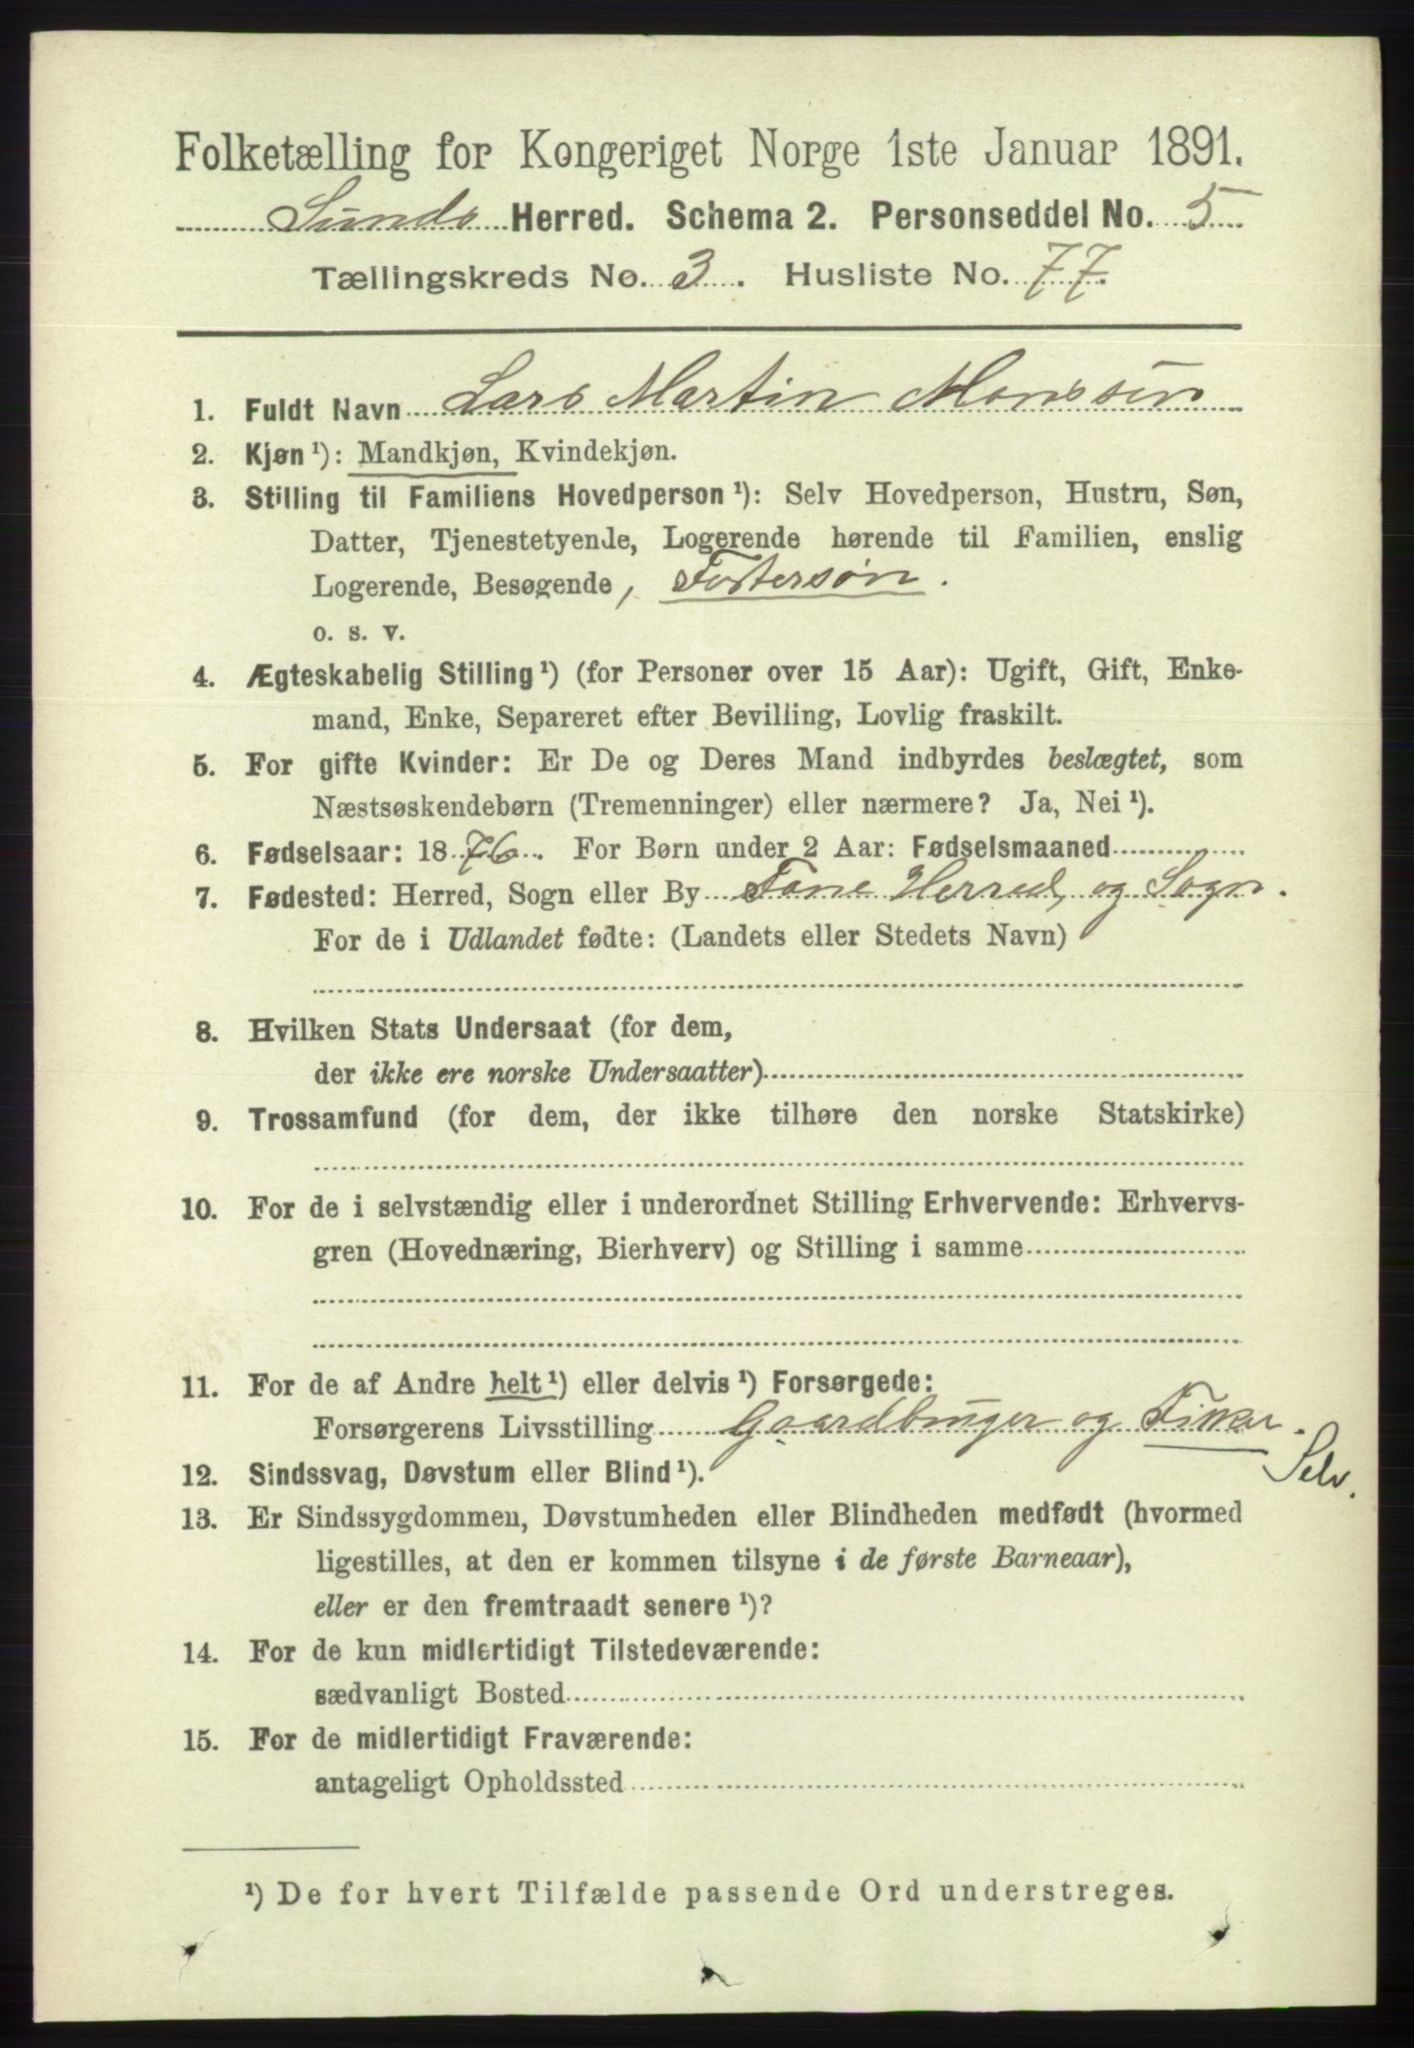 Folketælling for Kongeriget Norge 1ste Januar 1891.
Sunds Herred. Schema 2. Personseddel No. 5
Tællingskreds No. 3. Husliste No. 77.
1. Fuldt Navn Lars Martin Monssen
2. Kjøn¹): Mandkjøn, Kvindekjøn.
3. Stilling til Familiens Hovedperson¹): Selv Hovedperson, Hustru, Søn,
Datter, Tjenestetyende, Logerende hørende til Familien, enslig
Logerende, Besøgende, Fostersøn.
o. s. v.
4. Ægteskabelig Stilling¹) (for Personer over 15 Aar): Ugift, Gift, Enke-
mand, Enke, Separeret efter Bevilling, Lovlig fraskilt.
5. For gifte Kvinder: Er De og Deres Mand indbyrdes beslægtet, som
Næstsøskendebørn (Tremenninger) eller nærmere? Ja, Nei¹).
6. Fødselsaar: 1876. For Børn under 2 Aar: Fødselsmaaned
7. Fødested: Herred, Sogn eller By Fane Herred og Sogn.
For de i Udlandet fødte: (Landets eller Stedets Navn)
8. Hvilken Stats Undersaat (for dem,
der ikke ere norske Undersaatter)
9. Trossamfund (for dem, der ikke tilhøre den norske Statskirke)
10. For de i selvstændig eller i underordnet Stilling Erhvervende: Erhvervs-
gren (Hovednæring, Bierhverv) og Stilling i samme
11. For de af Andre helt¹) eller delvis¹) Forsørgede:
Forsørgerens Livsstilling Gaardbruger og Fisker.
Selv.
12. Sindssvag, Døvstum eller Blind¹).
13. Er Sindssygdommen, Døvstumheden eller Blindheden medfødt (hvormed
ligestilles, at den er kommen tilsyne i de første Barneaar),
eller er den fremtraadt senere¹)?
14. For de kun midlertidigt Tilstedeværende:
sædvanligt Bosted
15. For de midlertidigt Fraværende:
antageligt Opholdssted
¹) De for hvert Tilfælde passende Ord understreges.